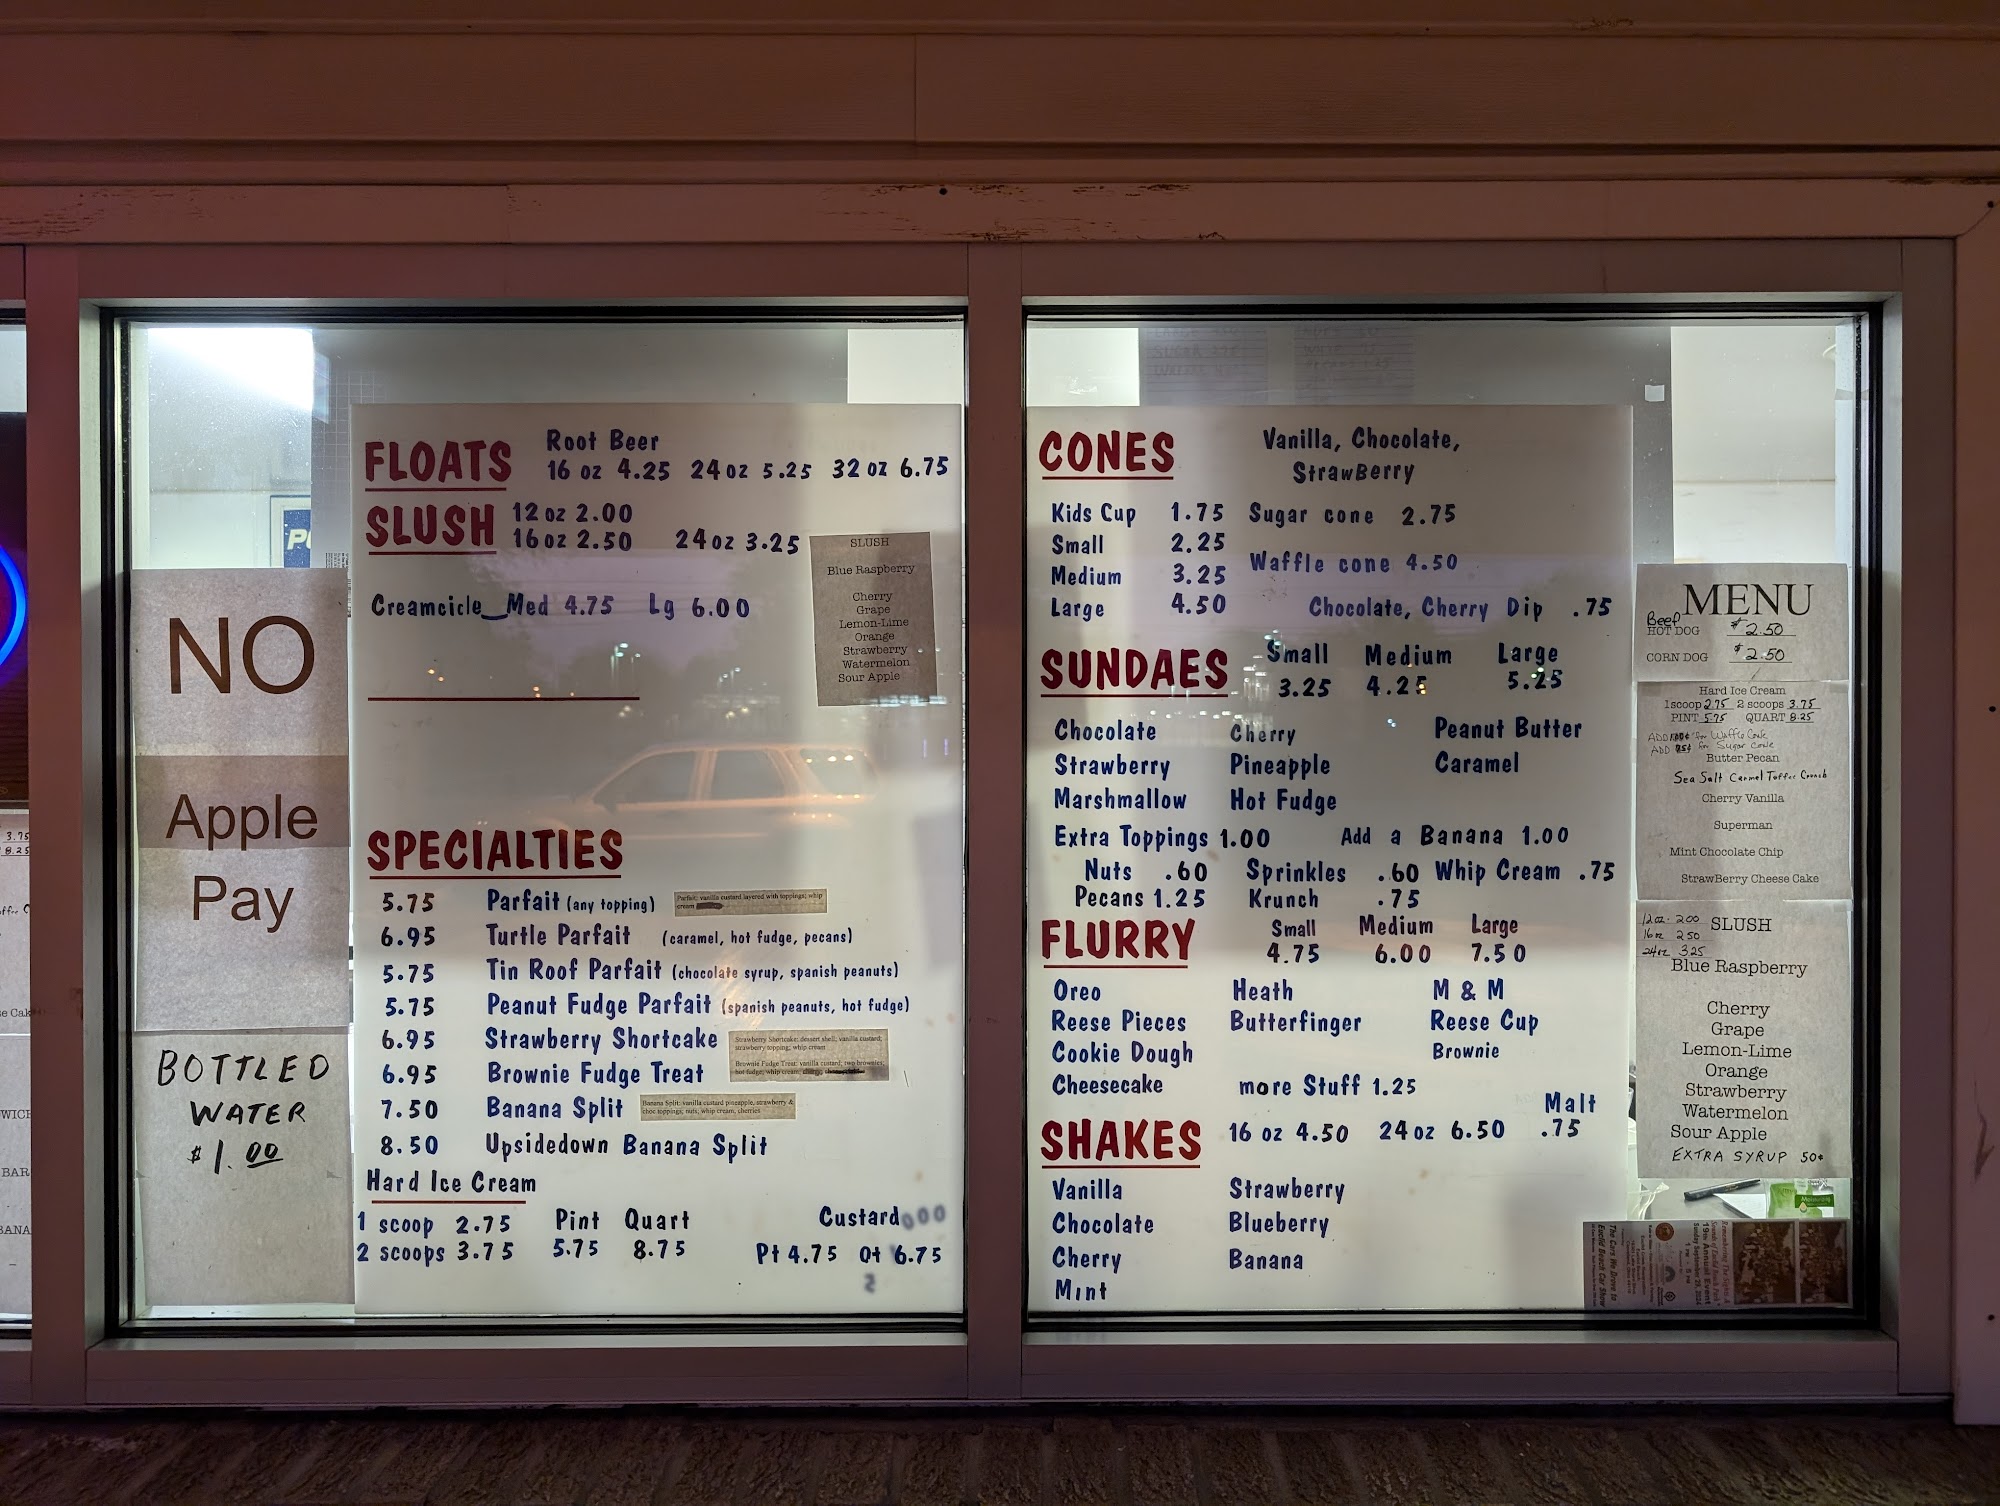 NO
Apple
Pay
BOTTLED
WATER
$1.00
FLOATS
Root Beer
16 oz 4.25 24 oz 5.25 32 oz 6.75
SLUSH
12 oz 2.00
16 oz 2.50 24 oz 3.25
Creamcicle Med 4.75 Lg 6.00
SLUSH
Blue Raspberry
Cherry
Grape
Lemon-Lime
Orange
Strawberry
Watermelon
Sour Apple
SPECIALTIES
5.75 Parfait (any topping)
Parfait: vanilla custard layered with toppings; whip
cream
6.95 Turtle Parfait (caramel, hot fudge, pecans)
5.75 Tin Roof Parfait (chocolate syrup, spanish peanuts)
5.75 Peanut Fudge Parfait (spanish peanuts, hot fudge)
6.95 Strawberry Shortcake
Strawberry Shortcake: dessert shell; vanilla custard;
strawberry topping; whip cream
6.95 Brownie Fudge Treat
Brownie Fudge Treat: vanilla custard; two brownies;
hot fudge; whip cream;
7.50 Banana Split
Banana Split: vanilla custard pineapple, strawberry &
choc toppings; nuts; whip cream, cherries
8.50 Upsidedown Banana Split
Hard Ice Cream
1 scoop 2.75 Pint Quart Custard
2 scoops 3.75 5.75 8.75 Pt 4.75 Qt 6.75
CONES
Vanilla, Chocolate,
StrawBerry
Kids Cup 1.75 Sugar cone 2.75
Small 2.25
Waffle cone 4.50
Medium 3.25
Large 4.50 Chocolate, Cherry Dip .75
SUNDAES
Small Medium Large
3.25 4.25 5.25
Chocolate Cherry Peanut Butter
Strawberry Pineapple Caramel
Marshmallow Hot Fudge
Extra Toppings 1.00 Add a Banana 1.00
Nuts .60 Sprinkles .60 Whip Cream .75
Pecans 1.25 Krunch .75
FLURRY
Small Medium Large
4.75 6.00 7.50
Oreo Heath M & M
Reese Pieces Butterfinger Reese Cup
Cookie Dough Brownie
Cheesecake more Stuff 1.25
SHAKES
16 oz 4.50 24 oz 6.50 Malt .75
Vanilla Strawberry
Chocolate Blueberry
Cherry Banana
Mint
MENU
Beef
HOT DOG $2.50
CORN DOG $2.50
Hard Ice Cream
1scoop 2.75 2 scoops 3.75
PINT 5.75 QUART 8.25
for Waffle Cone
ADD for Sugar cone
Butter Pecan
Sea Salt Carmel Toffee Crunch
Cherry Vanilla
Superman
Mint Chocolate Chip
StrawBerry Cheese Cake
12 oz. 2.00
16 oz 2.50
24 oz 3.25
SLUSH
Blue Raspberry
Cherry
Grape
Lemon-Lime
Orange
Strawberry
Watermelon
Sour Apple
EXTRA SYRUP 50¢
19th Annual Event
The Cars We Drove to
Euclid Beach Car Show